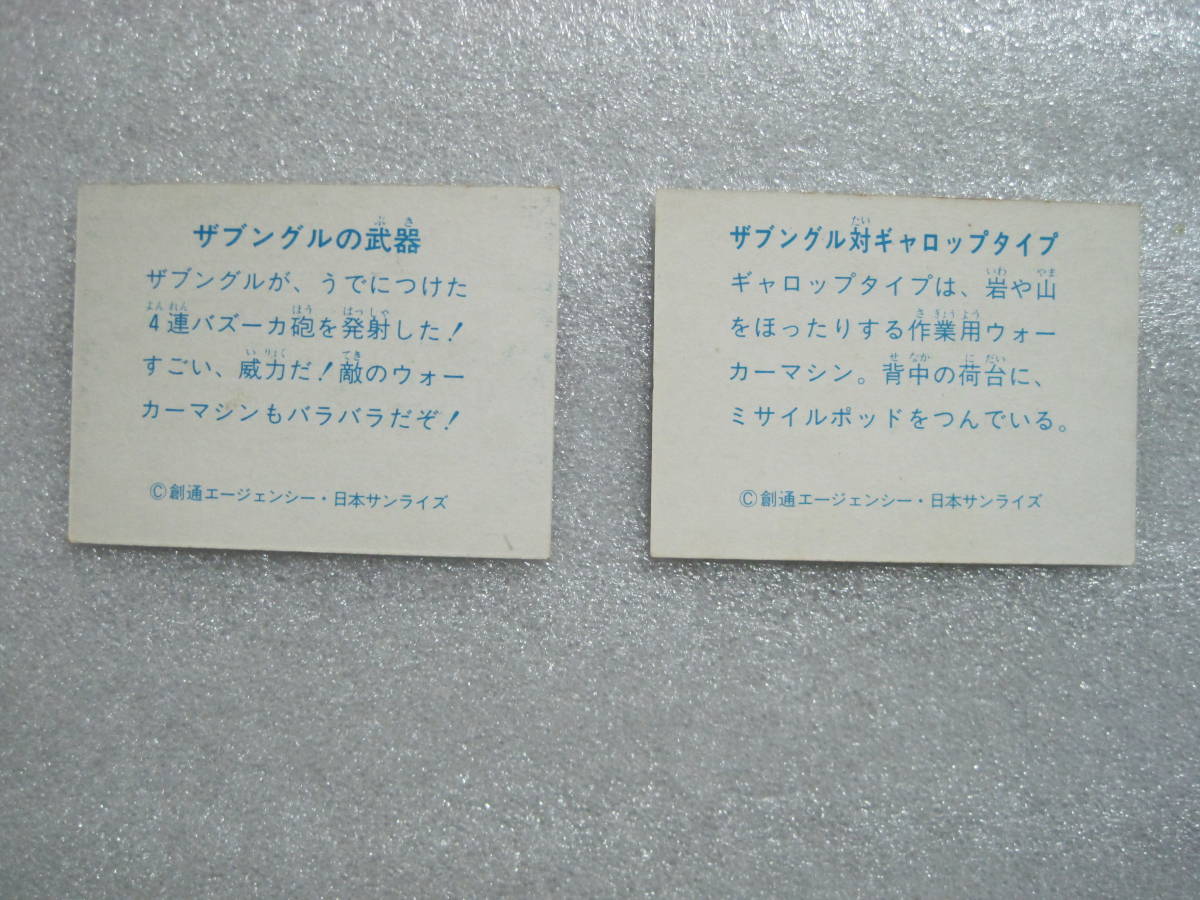 ザブングルの武器
ザブングルが、うでにつけた
4連バズーカ砲を発射した!
すごい、威力だ!敵のウォー
カーマシンもバラバラだぞ!
©創通エージェンシー・日本サンライズ
ザブングル対ギャロップタイプ
ギャロップタイプは、岩や山
をほったりする作業用ウォー
カーマシン。背中の荷台に、
ミサイルポッドをつんでいる。
©創通エージェンシー・日本サンライズ